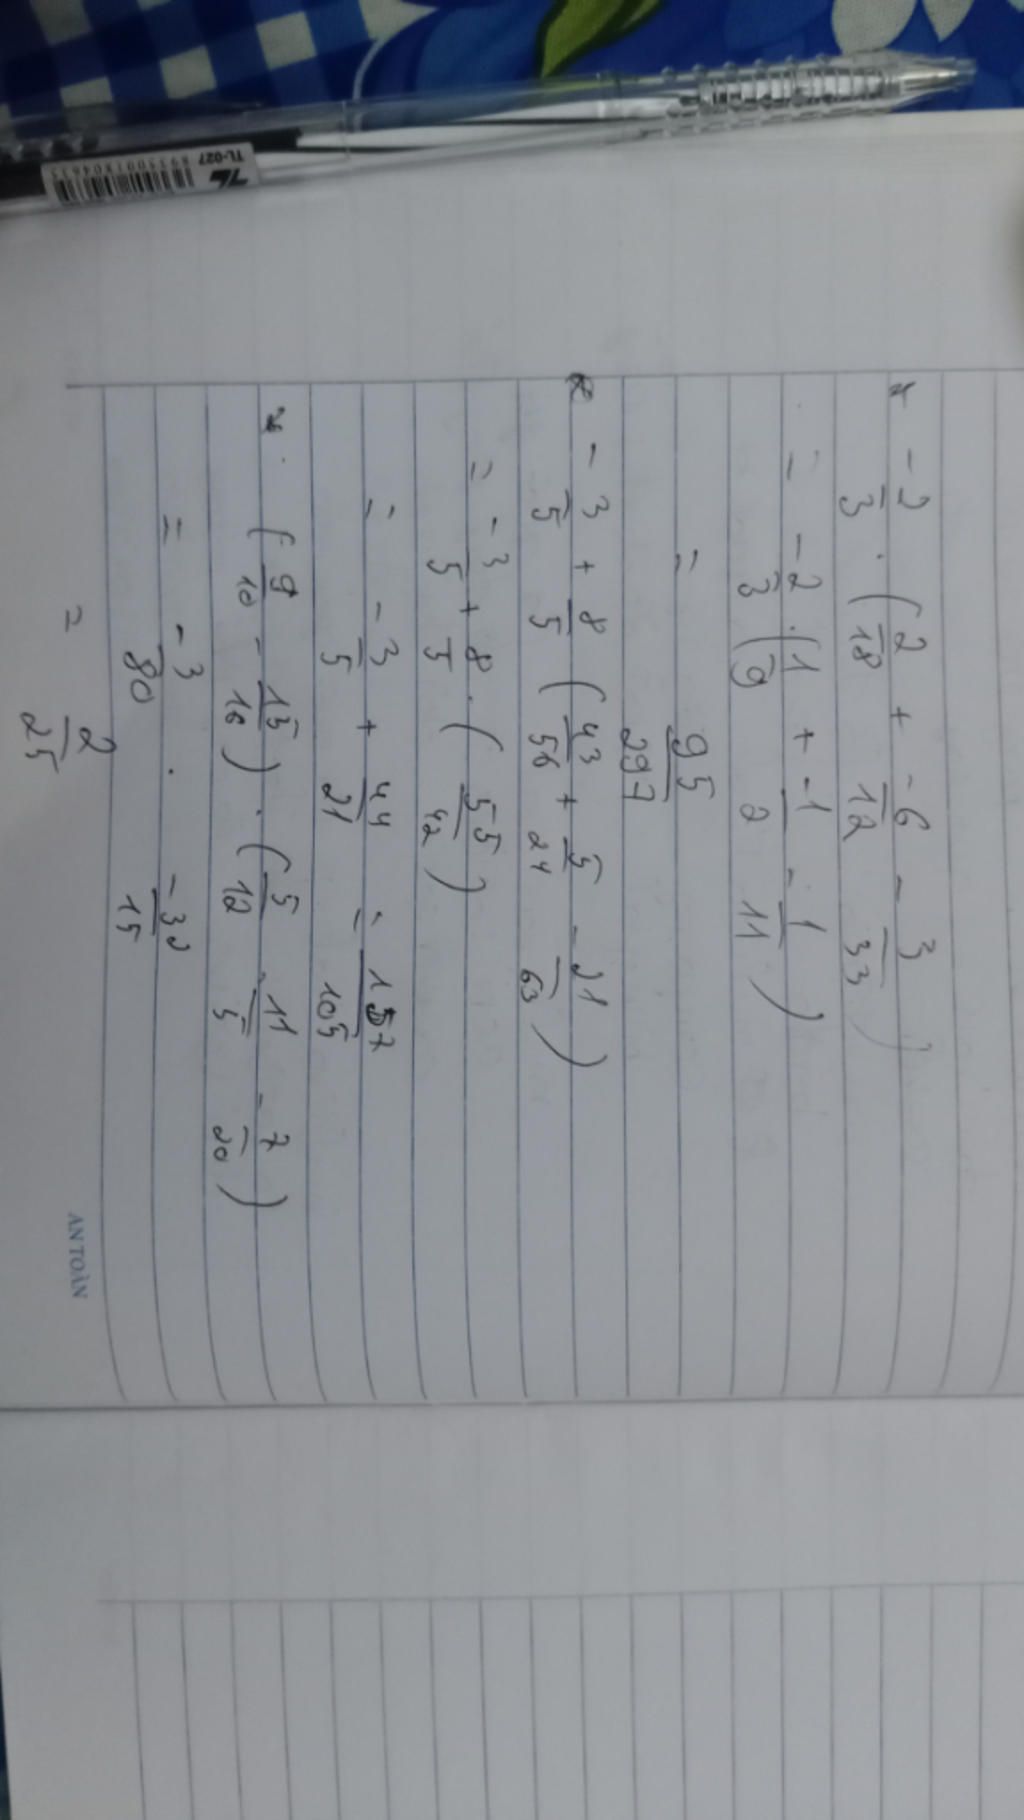 * -2/3 . (2/18 + -6/12 - 3/33)
= -2/3 . (1/9 + -1/2 - 1/11)
= 95/297
* -3/5 + 8/5 (43/56 + 5/24 - 21/63)
= -3/5 + 8/5 . (55/42)
= -3/5 + 44/21 = 157/105
* (9/10 - 15/16) . (5/12 - 11/5 - 7/20)
= -3/80 . -32/15
= 2/25
AN TOÀN
TL-027
8935001804635